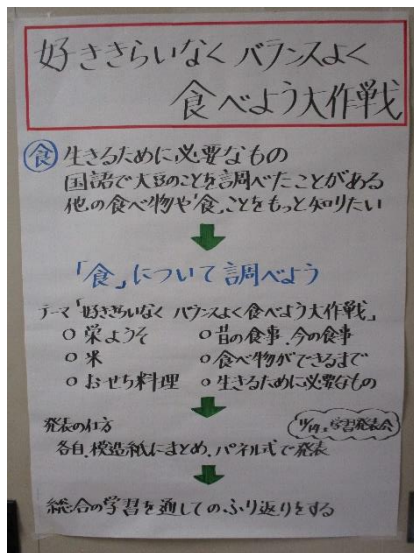 好ききらいなく バランスよく
食べよう大作戦
食 生きるために必要なもの
国語で大豆のことを調べたことがある
他の食べ物や「食」ことをもっと知りたい
「食」について調べよう
テーマ「好ききらいなく バランスよく食べよう大作戦」
○ 栄ようそ ○ 昔の食事、今の食事
○ 米 ○ 食べ物ができるまで
○ おせち料理 ○ 生きるために必要なもの
発表の仕方
学習発表会
各自、模造紙にまとめ、パネル式で発表
総合の学習を通してのふり返りをする